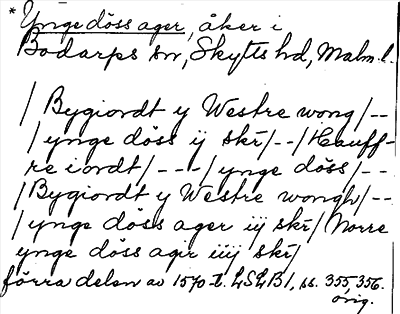 * Ynge döss ager, åker i
Bodarps sn, Skytts hd, Malm. l.
/ Bygiordt y Westre wong / --
/ ynge döss ij skr̄ / -- / Hauff-
re iordt / --- / ynge döss / --
/ Bygiordt y Westre wongh / --
/ ynge döss ager iij skr̄ / Norre
ynge döss agir iiij skr̄ /
förra delen av 1570-t. LSLB1, ss. 355, 356.
orig.